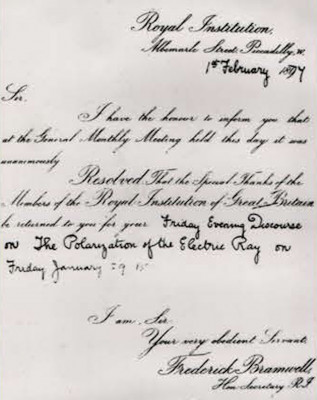 Royal Institution,
Albemarle Street, Piccadilly, W.
1st February 1897
Sir.
I have the honour to inform you that
at the General Monthly Meeting held this day it was
unanimously
Resolved That the Special Thanks of the
Members of the Royal Institution of Great Britain
be returned to you for your Friday Evening Discourse
on The Polarization of the Electric Ray on
Friday January 29
I am, Sir.
Your very obedient Servant,
Frederick Bramwell,
Hon Secretary R.I